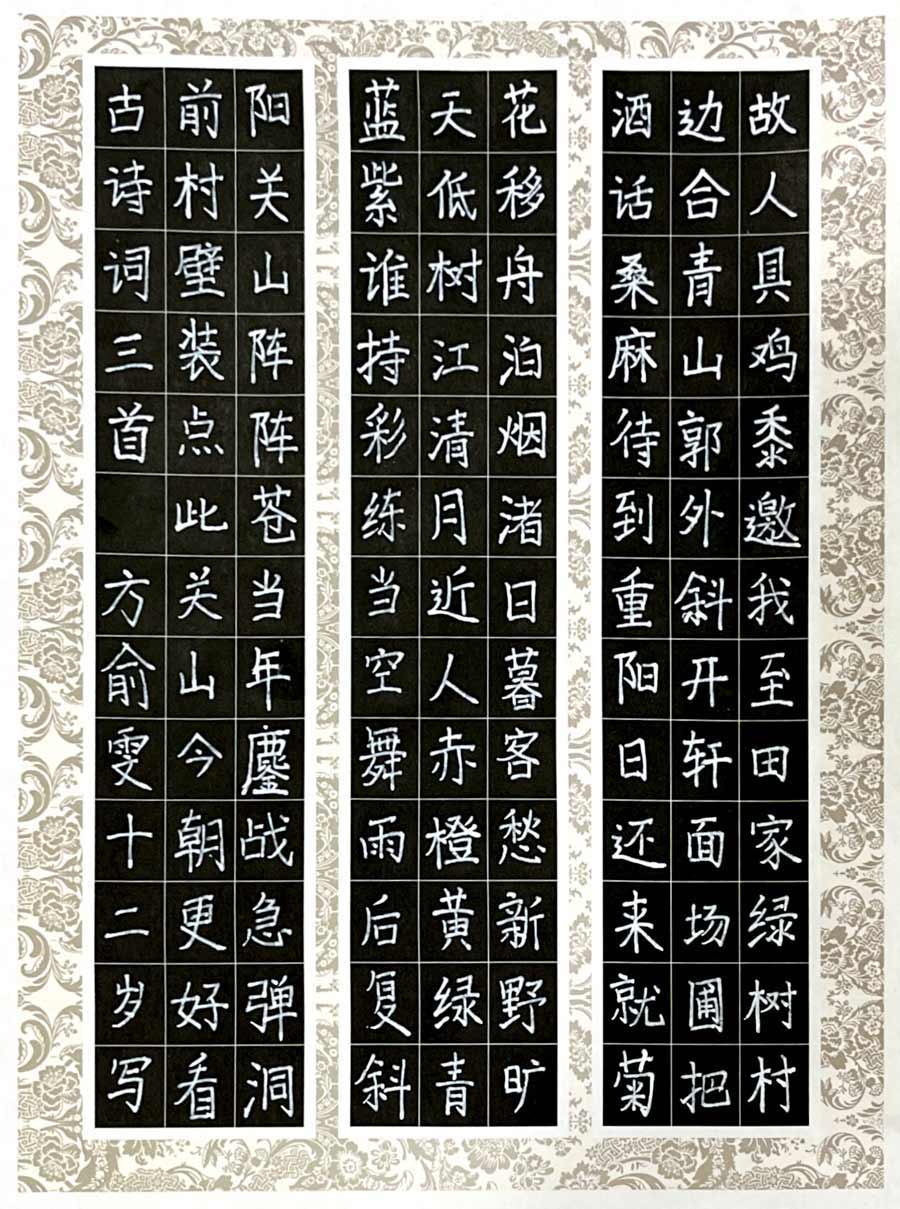 故人具鸡黍邀我至田家绿树村
边合青山郭外斜开轩面场圃把
酒话桑麻待到重阳日还来就菊
花移舟泊烟渚日暮客愁新野旷
天低树江清月近人赤橙黄绿青
蓝紫谁持彩练当空舞雨后复斜
阳关山阵阵苍当年鏖战急弹洞
前村壁装点此关山今朝更好看
古诗词三首 方俞雯十二岁写